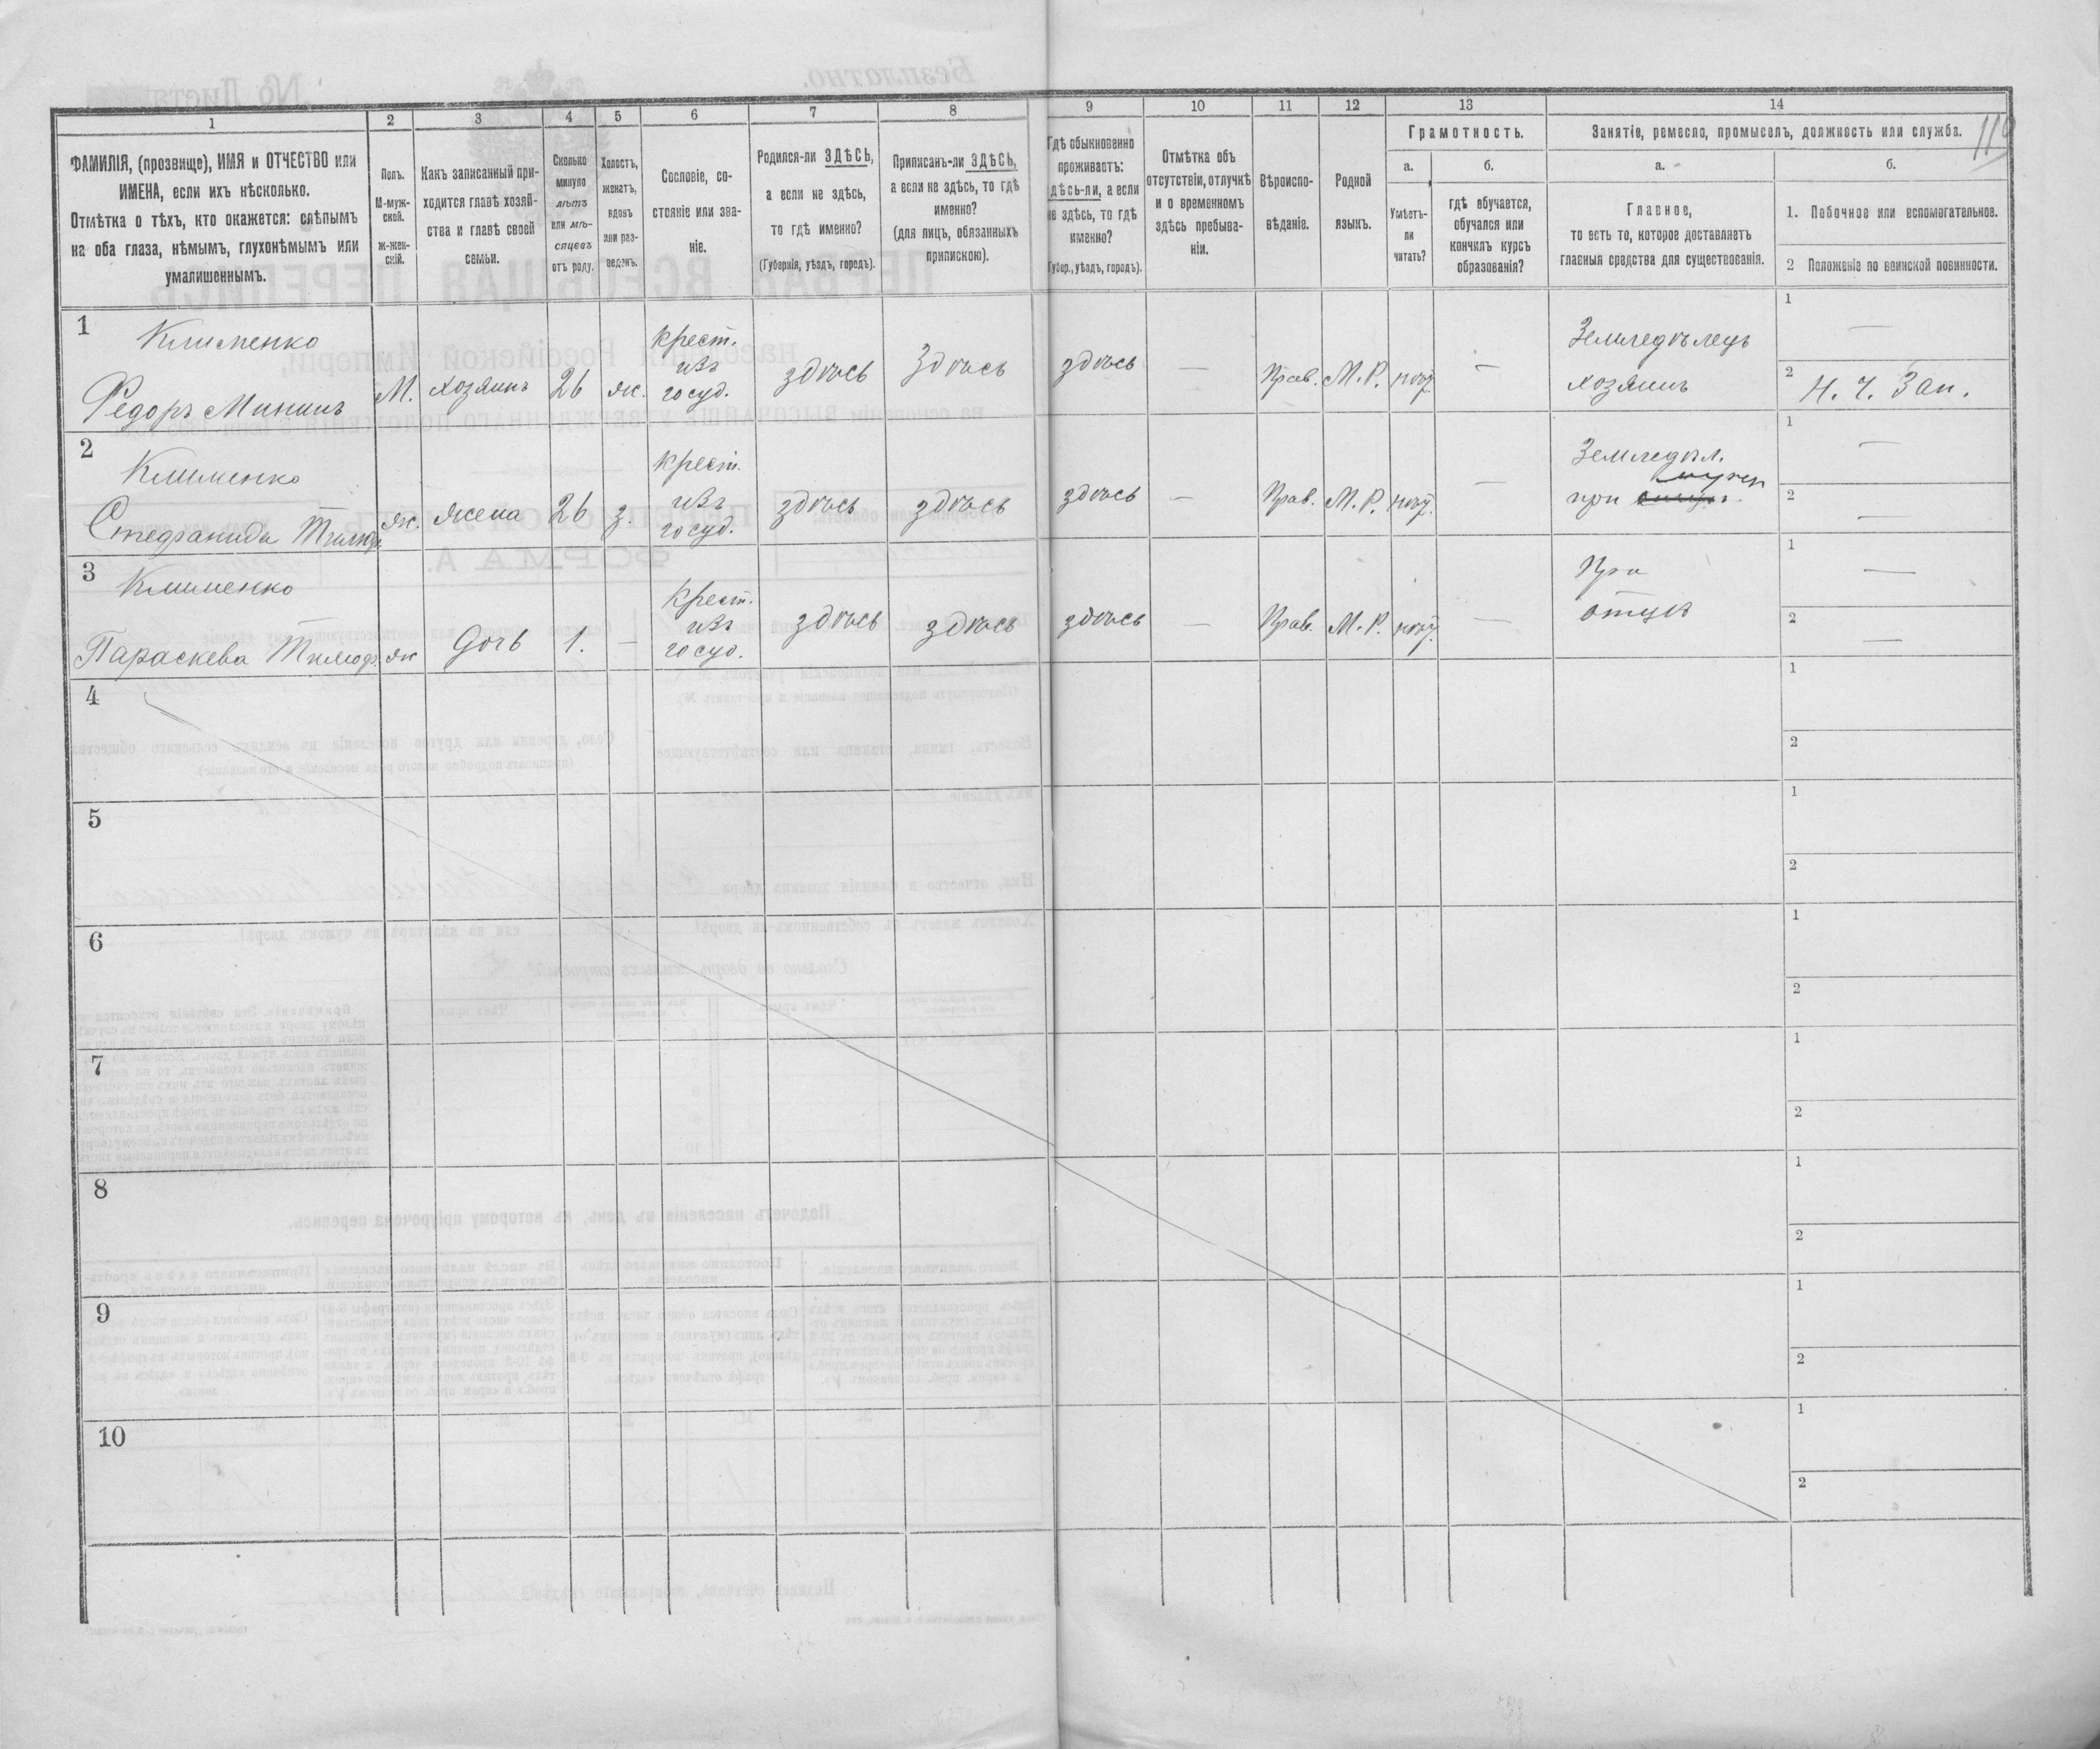 1 2 3 4 5 6 7 8 9 10 11 12 13 14
119
ФАМИЛІЯ, (прозвище), ИМЯ и ОТЧЕСТВО или
ИМЕНА, если ихъ нѣсколько.
Отмѣтка о тѣхъ, кто окажется: слѣпымъ
на оба глаза, нѣмымъ, глухонѣмымъ или
умалишеннымъ.
Полъ.
М-муж-
ской.
ж-жен-
скій.
Какъ записанный при-
ходится главѣ хозяй-
ства и главѣ своей
семьи.
Сколько
минуло
лѣтъ
или мѣ-
сяцевъ
отъ роду.
Холостъ,
женатъ,
вдовъ
или раз-
веденъ.
Сословіе, со-
стояніе или зва-
ніе.
Родился-ли ЗДѢСЬ,
а если не здѣсь,
то гдѣ именно?
(Губернія, уѣздъ, городъ).
Приписанъ-ли ЗДѢСЬ,
а если не здѣсь, то гдѣ
именно?
(для лицъ, обязанныхъ
припискою).
Гдѣ обыкновенно
проживаетъ:
здѣсь-ли, а если
не здѣсь, то гдѣ
именно?
(Губер., уѣздъ, городъ).
Отмѣтка объ
отсутствіи, отлучкѣ
и о временномъ
здѣсь пребыва-
ніи.
Вѣроиспо-
вѣданіе.
Родной
языкъ.
Грамотность.
а.
Умѣетъ-
ли
читать?
б.
гдѣ обучается,
обучался или
кончилъ курсъ
образованія?
Занятіе, ремесло, промыселъ, должность или служба.
а.
Главное,
то есть то, которое доставляетъ
главныя средства для существованія.
б.
1. Побочное или вспомогательное.
2 Положеніе по воинской повинности.
1
Клименко
Федоръ Мининъ
М.
хозяинъ
26
ж.
крест.
изъ
госуд.
здѣсь
здѣсь
здѣсь
—
Прав.
М. Р.
нѣт.
—
Земледѣлецъ
хозяинъ
1 —
2 Н. Ч. Зап.
2
Клименко
Стефанида
ж.
жена
26
з.
крест.
изъ
госуд.
здѣсь
здѣсь
здѣсь
—
Прав.
М. Р.
нѣт.
—
Земледѣл.
при
1 —
2 —
3
Клименко
Параскева
ж
дочь
1.
—
крест.
изъ
госуд.
здѣсь
здѣсь
здѣсь
—
Прав.
М. Р.
нѣт.
—
При
отцѣ
1 —
2 —
4
1
2
5
1
2
6
1
2
7
1
2
8
1
2
9
1
2
10
1
2